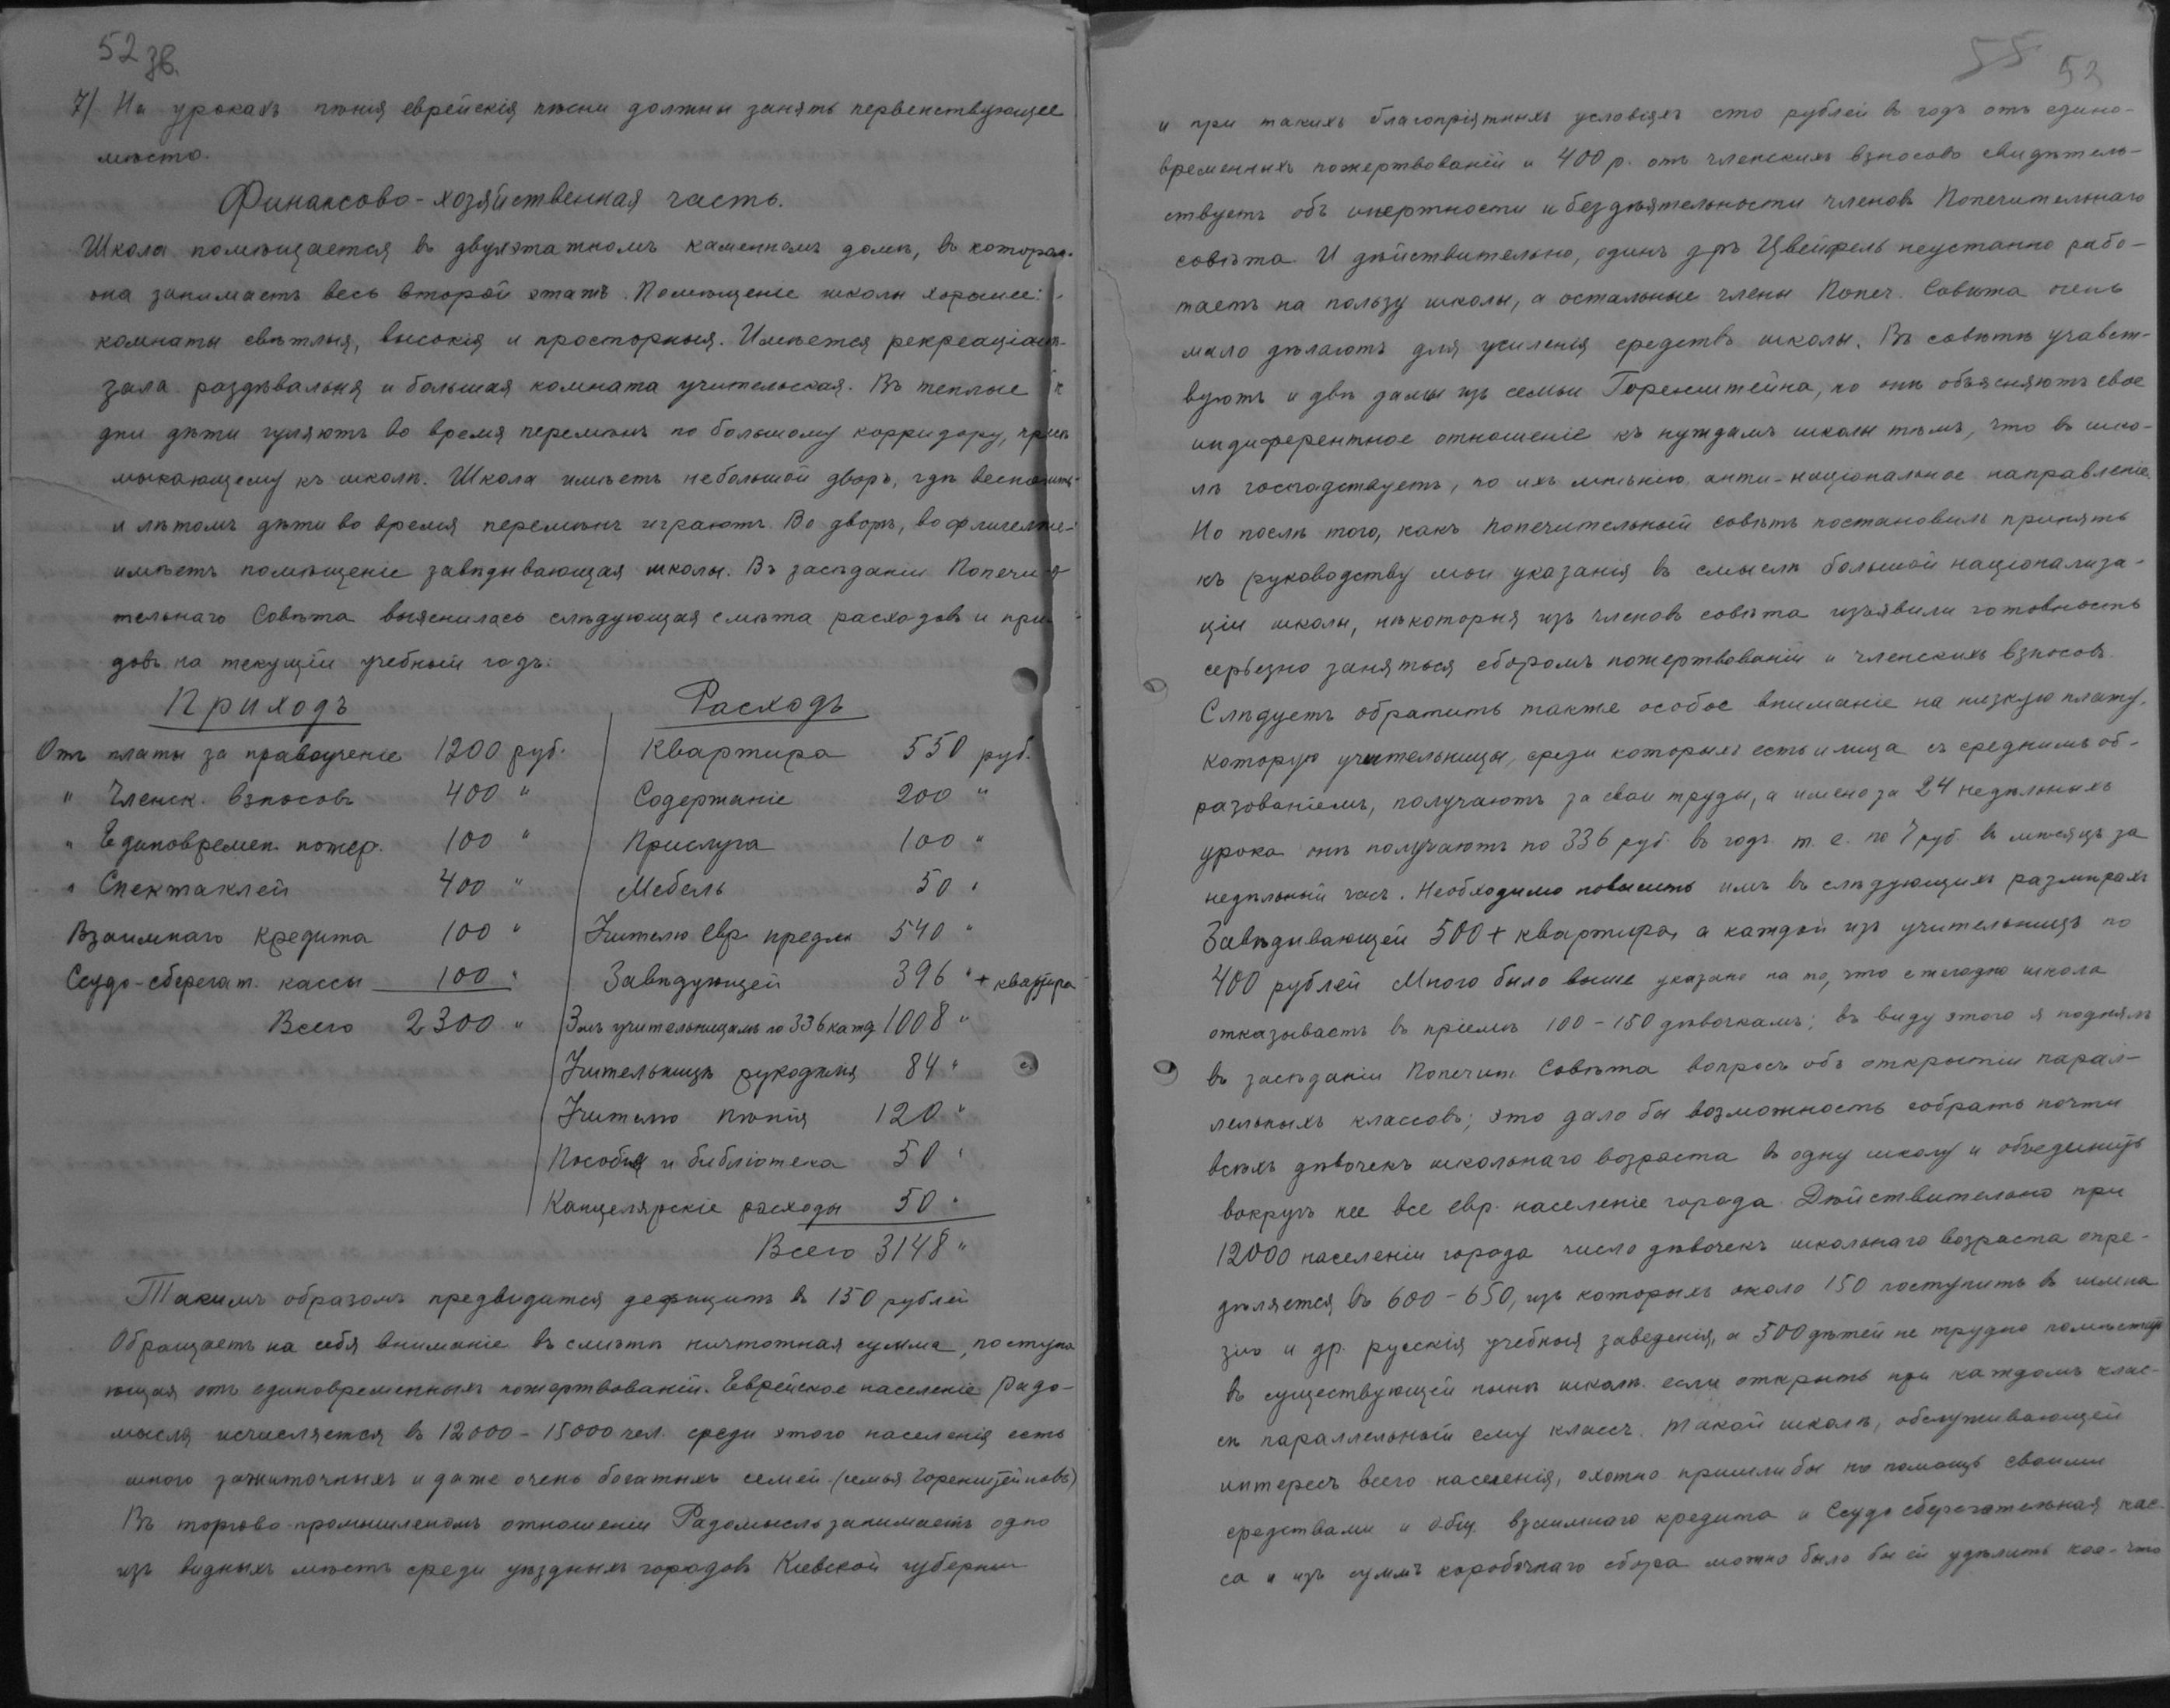 52 зв.
7) На урокахъ пѣнія еврейскія пѣсни должны занять первенствующее
мѣсто.
Финансово-хозяйственная часть.
Школа помѣщается въ двухэтажномъ каменномъ домѣ, въ котором
она занимаетъ весь второй этажъ. Помѣщеніе школы хорошее:
комнаты свѣтлыя, высокія и просторныя. Имѣется рекреаціон.
зала раздѣвальня и большая комната учительская. Въ теплые
дни дѣти гуляютъ во время перемѣнъ по большому корридору, при
мыкающему къ школѣ. Школа имѣетъ небольшой дворъ, гдѣ весною
и лѣтомъ дѣти во время перемѣнъ играютъ. Во дворѣ, во флигелѣ
имѣетъ помѣщеніе завѣдывающая школы. Въ засѣданіи Попечи-
тельнаго Совѣта выяснилась слѣдующая смѣта расходовъ и при
довъ на текущій учебный годъ:
Приходъ Расходъ
Отъ платы за правоученіе 1200 руб. Квартира 550 руб.
" Членск. взносовъ 400 " Содержаніе 200 "
" Единовремен. пожер. 100 " Прислуга 100 "
" Спектаклей 400 " Мебель 50 "
Взаимнаго кредита 100 " Учителю евр. предм 540 "
Ссудо-сберегат. кассы 100 " Завѣдующей 396 " + квартира
Всего 2300 " 3мъ учительницамъ по 336 кажд 1008 "
Учительницѣ рукодѣлія 84 "
Учителю пѣнія 120 "
Пособія и библіотека 50 "
Канцелярскіе расходы 50 "
Всего 3148 "
Такимъ образомъ предвидится дефицитъ въ 150 рублей
Обращаетъ на себя вниманіе въ смѣтѣ ничтожная сумма, поступа
ющая отъ единовременныхъ пожертвованій. Еврейское населеніе Радо-
мысля исчисляется въ 12000-15000 чел. среди этого населенія есть
много зажиточныхъ и даже очень богатыхъ семей (семья Горенштейновъ)
Въ торгово-промышленомъ отношеніи Радомысль занимаетъ одно
изъ видныхъ мѣстъ среди уѣздныхъ городовъ Кіевской губерніи
55 53
и при такихъ благопріятныхъ условіяхъ сто рублей въ годъ отъ едино-
временныхъ пожертвованій и 400 р. отъ членскихъ взносовъ свидѣтель-
ствуетъ объ инертности и бездѣятельности членовъ Попечительнаго
совѣта. И дѣйствительно, одинъ д-ръ Цвейфель неустанно рабо-
таетъ на пользу школы, а остальные члены Попеч. Совѣта очень
мало дѣлаютъ для усиленія средствъ школы. Въ совѣтѣ учавст-
вуютъ и двѣ дамы изъ семьи Горенштейна, но онѣ объясняютъ свое
индиферентное отношеніе къ нуждамъ школы тѣмъ, что въ шко-
лѣ господствуетъ, по ихъ мнѣнію анти-національное направленіе.
Но послѣ того, какъ попечительный совѣтъ постановилъ принять
къ руководству мои указанія въ смыслѣ большой націонализа-
ціи школы, нѣкоторыя изъ членовъ совѣта изъявили готовность
серьезно заняться сборомъ пожертвованій и членскихъ взносовъ.
Слѣдуетъ обратить также особое вниманіе на низкую плату,
которую учительницы, среди которыхъ есть и лица съ среднимъ об-
разованіемъ, получаютъ за свои труды, а имено за 24 недѣльныхъ
урока онѣ получаютъ по 336 руб. въ годъ т. е. по 7 руб въ мѣсяцъ за
недѣльный часъ. Необходимо повысить имъ въ слѣдующихъ размѣрахъ
Завѣдывающей 500 + квартира, а каждой изъ учительницъ по
400 рублей Много было выше указано на то, что ежегодно школа
отказываетъ въ пріемѣ 100-150 дѣвочкамъ; въ виду этого я поднялъ
въ засѣданіи Попечит Совѣта вопросъ объ открытіи парал-
лельныхъ классовъ; это дало бы возможность собрать почти
всѣхъ дѣвочекъ школьнаго возраста въ одну школу и объединить
вокругъ нее все евр. населеніе города. Дѣйствительно при
12000 населеніи города число дѣвочекъ школьнаго возраста опре-
дѣляется въ 600-650, изъ которыхъ около 150 поступитъ въ гимна
зію и др. русскія учебныя заведенія, а 500 дѣтей не трудно помѣстить
въ существующей нынѣ школѣ если открыть при каждомъ клас-
сѣ параллельный ему классъ. Такой школѣ, обслуживающей
интересъ всего населенія, охотно пришли бы на помощь своими
средствами и Общ. взаимнаго кредита и Ссудо сберегательная кас-
са и изъ суммъ коробочнаго сбора можно было бы ей удѣлить кое-что